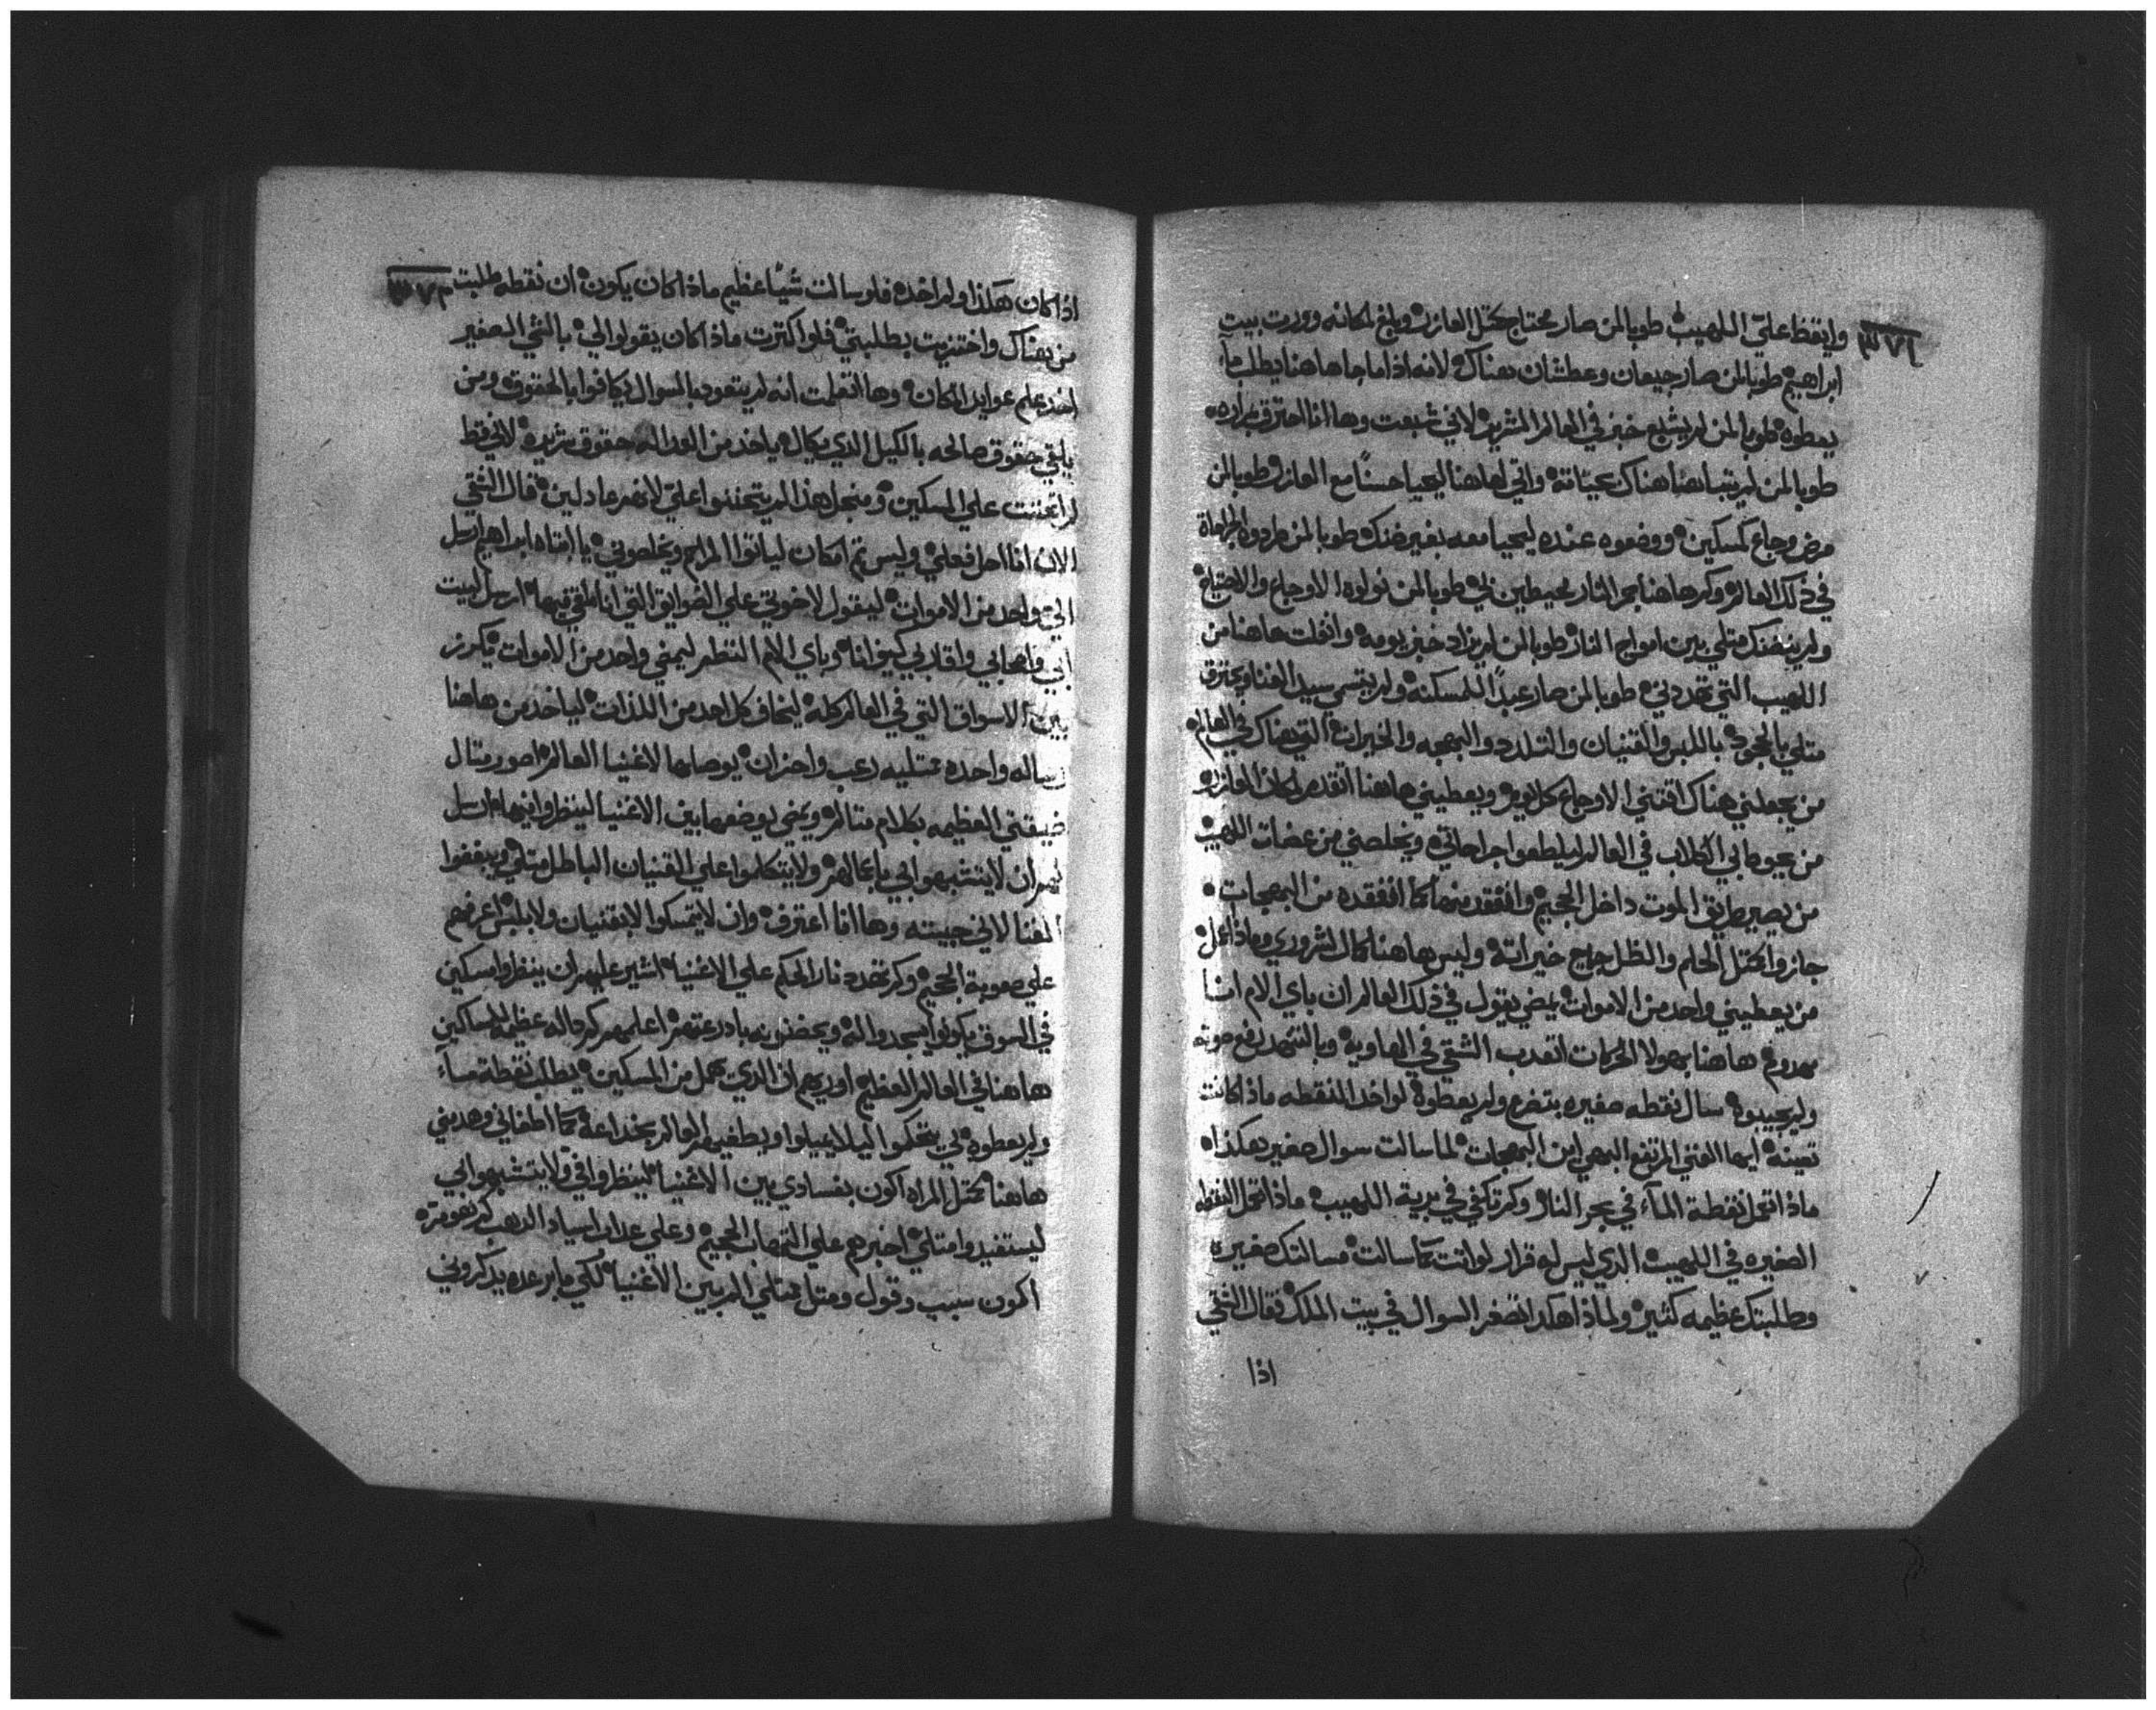 وايقظ عليّ اللهيب طوبا لمن صار محتاج كمتل العازر وبلغ لمكانه وورت بيت
ابراهيم طوبا لمن صار جيعان وعطشان هناك لانه اذا ما جا هاهنا يطلب مآء
يعطوه طوبا لمن لم يشبع خبز في العالم الشرير لاني شبعت وها انا احترق
طوبا لمن هناك واتي لهاهنا ليحيا حسناً مع العازر طوبا لمن
مرض وجاع كمسكين ووضعوه عنده ليحيا معه بغير ضنك طوبا لمن
في ذلك العالم وكم هاهنا بحر النار محيطين بي طوبا لمن الاوجاع والاحتياج
ولم متلي بين امواج النار طوبا لمن لم يزاد خبز يومه وانفلت هاهنا من
اللهيب التي تهددني طوبا لمن صار عبداً للمسكنه ولم سيد الغنا ويحترق
متلي بالجحود باللبس والقنيان والتلدد والبهجه والخيرات التي هناك في العالم
من يجعلني هناك اقتني الاوجاع كل يوم ويعطيني هاهنا اتقدم لمكان العازر
من بي الكلاب في العالم جراحاتي ويخلصني من عضات اللهيب
من يصير طريق الموت داخل الجحيم وافتقد منها كما افتقده من البهجات
جازوا كمتل الحلم والظل خيراته وليس هاهنا كمال لشروري وماذا اعمل
من يعطيني واحد من الاموات يمضي يقول في ذلك العالم ان باي الام انا
هاهنا بهولا الحركات اتعدب الشقي في الهاويه وبالتنهد يرفع صوته
ولم يجيبوه سال نقطه صغيره بتضرع ولم يعطوه لو اخد النقطه ماذا كانت
تعينه ايها الغني المرتفع البهي ابن البهجات لما سالت سوال صغير هكذا
ماذا تعمل نقطة المآء في بحر النار وكم تكفي في برية اللهيب ماذا تعمل النقطه
الصغيره في اللهيب الذي ليس له قرار لو انت سالت مسالتك صغيره
وطلبتك عظيمه كثير ولماذا هكدا تصغر السوال في بيت الملك فقال الغني
اذا
اذا كان هكذا ولم اخده فلو سالت شيئاً عظيم ماذا كان يكون ان نقطه طلبت
من هناك واختزيت بطلبتي فلو اكترت ماذا كان يقولوا لي بالشي الصغير
اخد علم عوايد المكان وها اتعلمت انه لم يتعود بالسوال يكافوا بالحقوق ومن
يلقي حقوق صالحه بالكيل الذي يكال ياخد من العداله حقوق شريره لاني قط
لم اتحننت علي المسكين ومنجل هذا لم يتحننوا عليّ لانهم عادلين قال الشقي
الان انا احل فعلي وليس تم امكان لياتوا المراحم ويخلصوني يا ابتاه ابراهيم ارسل
الي واحد من الاموات ليقول لاخوتي علي الضوايق التي انا ملقي فيها ارسل لبيت
ابي واصحابي واقاربي كيف انا وباي الام انتظر ليمضي واحد من الاموات يكرز
بين الاسواق التي في العالم كله ليخاف كل احد من اللذات لياخد من هاهنا
رساله واحده ممتليه رعب واحزان يوصلها لاغنيا العالم اصور متال
ضيقتي العظيمه بكلام متالم ويمضي يوضعها بين الاغنيا لينظروا فيها ارسل
لهم ان لا يتشبهوا بي باعمالهم ولا يتكلوا علي القنيان الباطل متلي ويبغضوا
الغنا لاني حبيته وها انا اعترف وان لا يتمسكوا لا بقنيان ولا بلبس اعرفهم
علي صعوبة الجحيم وكم تهدد نار الحكم علي الاغنيا اشير عليهم ان ينظروا مسكين
في السوق يكونوا يسجدوا له ويحضنوه بادرعتهم اعلمهم كم داله عظيمه للمساكين
هاهنا في العالم العظيم اوريهم ان الذي يهمل من المسكين يطلب نقطة مآء
ولم يعطوه لي يتحكموا ليلا يميلوا ويطغيهم العالم بخداعه كما اطغاني وهديني
هاهنا كمتل المراه اكون بفسادي بين الاغنيا لينظروا في ولا يتشبهوا بي
ليستفيدوا متلي اخبرهم علي الجحيم وعلي عداد اسياد الدهب كم نقومته
اكون سبب وقول ومتل مبتلي المر بين الاغنيا لكي ما برعده يدكروني